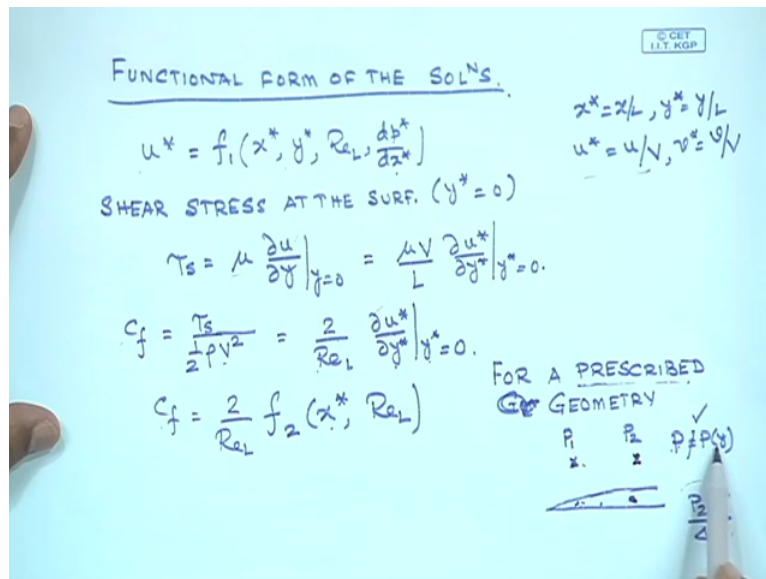 © CET
I.I.T. KGP
FUNCTIONAL FORM OF THE SOLᴺS.
x* = x/L, y* = y/L
u* = u/V, v* = v/V
u* = f₁(x*, y*, Re_L, dp*/dx*)
SHEAR STRESS AT THE SURF. (y* = 0)
τs = μ ∂u/∂y |y=0 = μV/L ∂u*/∂y* |y*=0.
Cf = τs / ½ρV² = 2/Re_L ∂u*/∂y* |y*=0.
Cf = 2/Re_L f₂(x*, Re_L)
FOR A PRESCRIBED
GEOMETRY
P₁ P₂ P ≠ P(y)
P₂